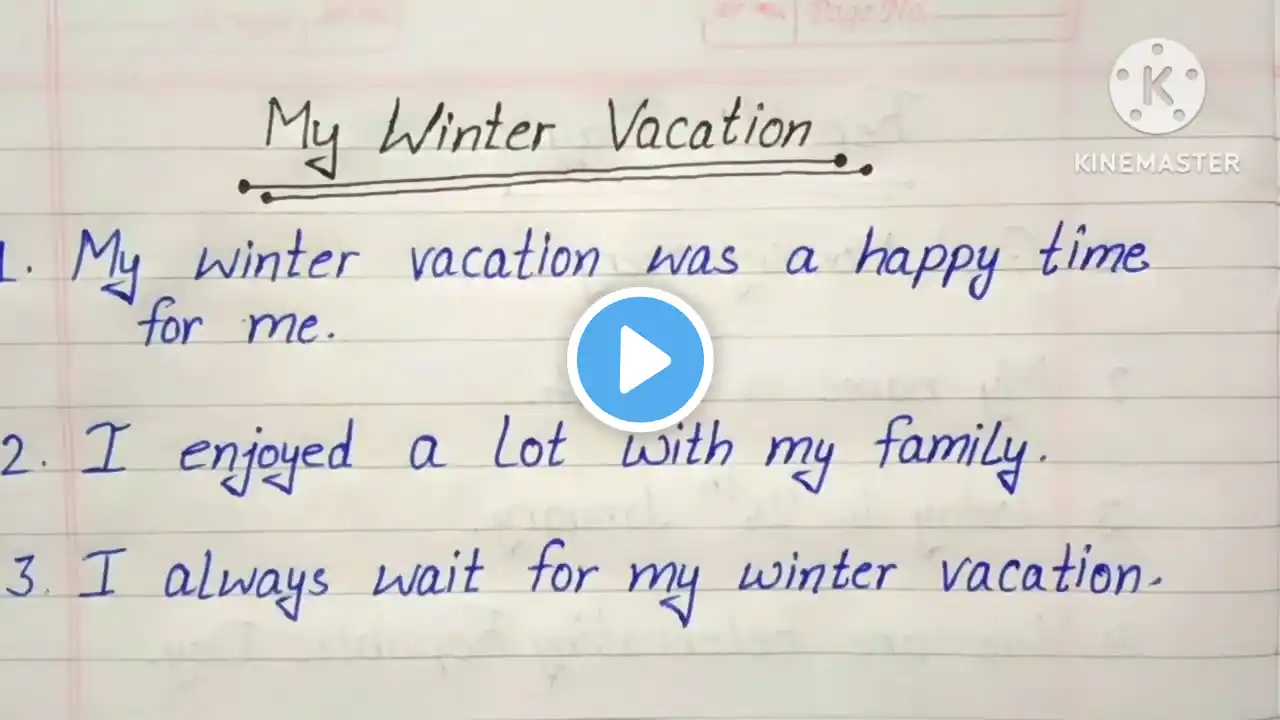 Page No.
My Winter Vacation
KINEMASTER
1. My winter vacation was a happy time
for me.
2. I enjoyed a lot with my family.
3. I always wait for my winter vacation.